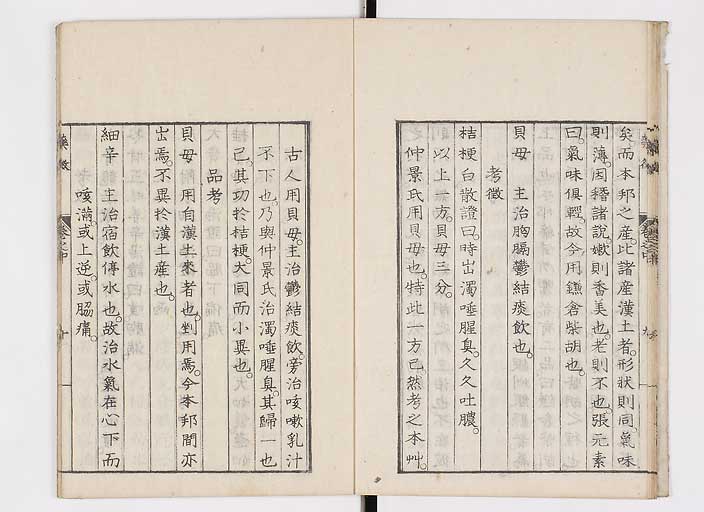 矣而本邦之產此諸產漢土者形狀則同氣味
則薄因稽諸說嫰則香美也老則不也張元素
曰氣味俱輕故今用鎌倉柴胡也
貝母 主治胸膈鬱結痰飲也
考徵
桔梗白散證曰時出濁唾腥臭久久吐膿
以上一方貝母三分
仲景氏用貝母也特此一方已然考之本艸
古人用貝母主治鬱結痰飲旁治咳嗽乳汁
不下也乃與仲景氏治濁唾腥臭其歸一也
已其功於桔梗大同而小異也
品考
貝母 用自漢土來者也剉用焉今本邦間亦
出焉不異於漢土產也
細辛 主治宿飲停水也故治水氣在心下而
咳滿或上逆或脇痛
藥徵
卷之中
十
九